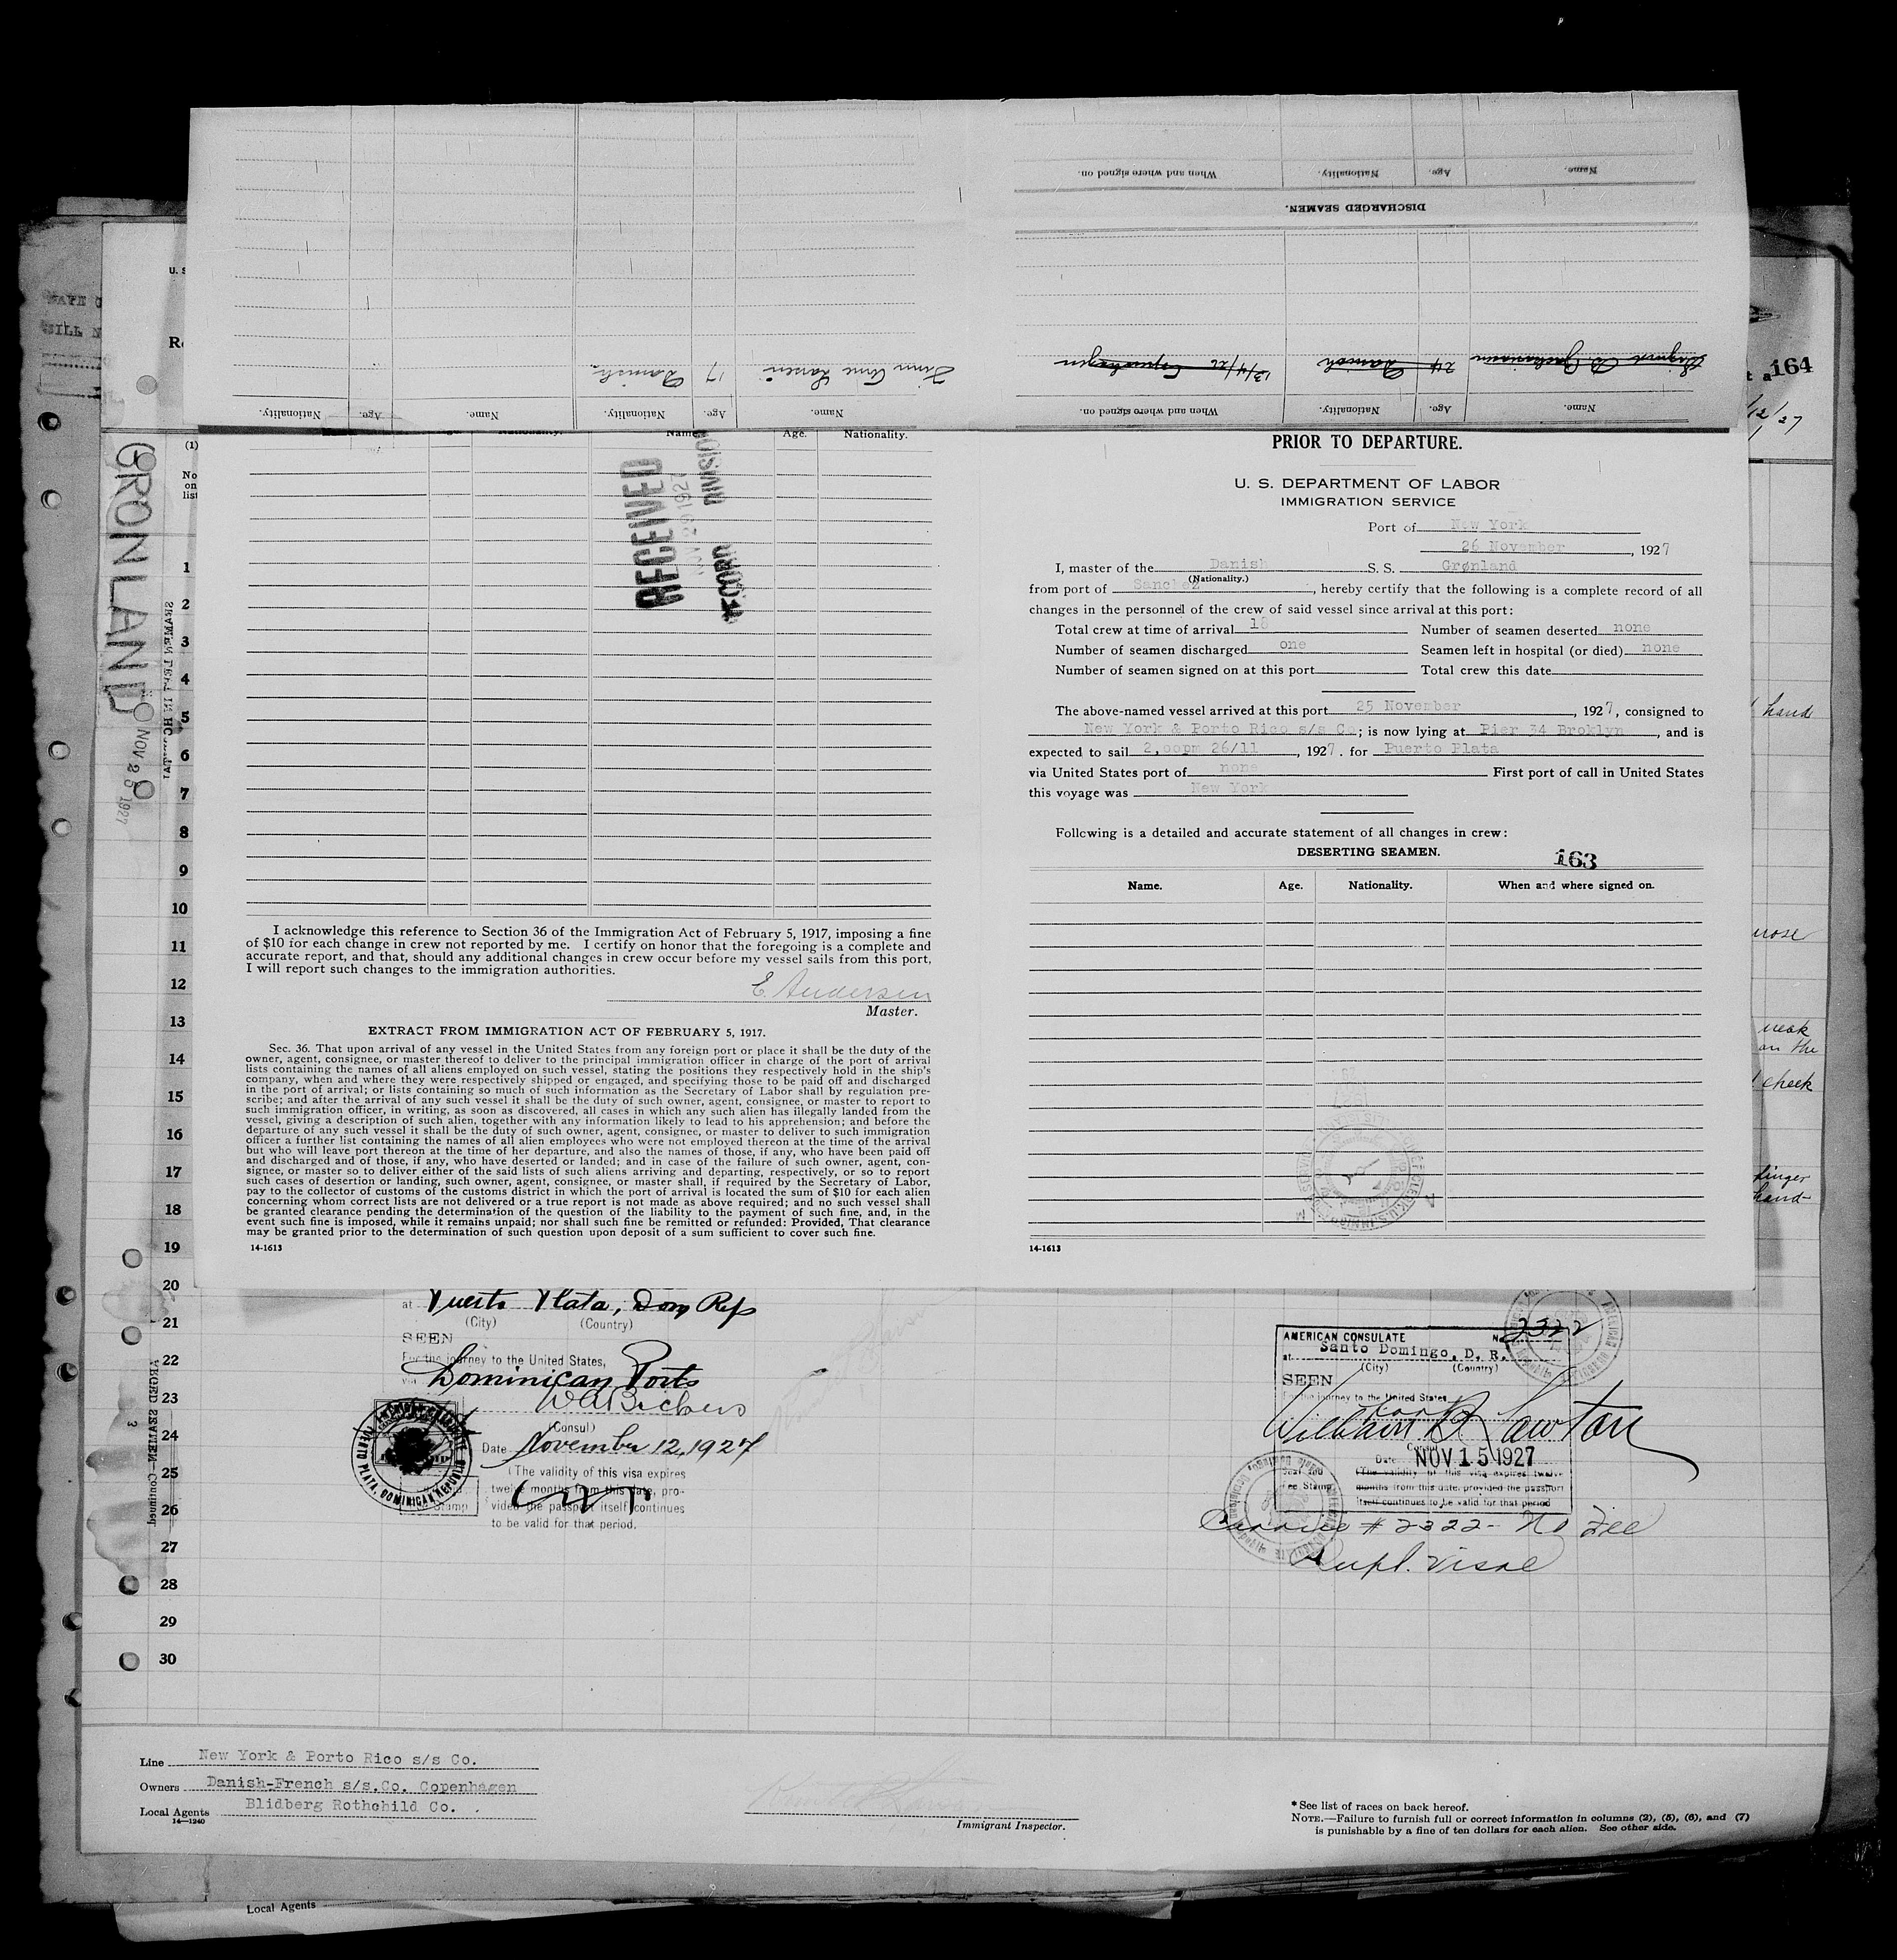 Name.
Age.
Nationality.
When and where signed on.
DISCHARGED SEAMEN.
24 Danish 13/4/26 Copenhagen
Name.
Age.
Nationality.
When and where signed on.
Finn Arne Larsen 17 Danish
Name.
Age.
Nationality.
Name.
Age.
Nationality.
U. S
164
/12/27
(1)
No
on
list
GRONLAND
NOV 25 1927
Name.
Age.
Nationality.
RECEIVED
RECORD DIVISION
1
2
3
4
5
6
7
8
9
10
11
12
13
14
15
16
17
18
19
20
21
22
23
24
25
26
27
28
29
30
I acknowledge this reference to Section 36 of the Immigration Act of February 5, 1917, imposing a fine
of $10 for each change in crew not reported by me. I certify on honor that the foregoing is a complete and
accurate report, and that, should any additional changes in crew occur before my vessel sails from this port,
I will report such changes to the immigration authorities.
E. Andersen
Master.
EXTRACT FROM IMMIGRATION ACT OF FEBRUARY 5, 1917.
Sec. 36. That upon arrival of any vessel in the United States from any foreign port or place it shall be the duty of the
owner, agent, consignee, or master thereof to deliver to the principal immigration officer in charge of the port of arrival
lists containing the names of all aliens employed on such vessel, stating the positions they respectively hold in the ship's
company, when and where they were respectively shipped or engaged, and specifying those to be paid off and discharged
in the port of arrival; or lists containing so much of such information as the Secretary of Labor shall by regulation pre-
scribe; and after the arrival of any such vessel it shall be the duty of such owner, agent, consignee, or master to report to
such immigration officer, in writing, as soon as discovered, all cases in which any such alien has illegally landed from the
vessel, giving a description of such alien, together with any information likely to lead to his apprehension; and before the
departure of any such vessel it shall be the duty of such owner, agent, consignee, or master to deliver to such immigration
officer a further list containing the names of all alien employees who were not employed thereon at the time of the arrival
but who will leave port thereon at the time of her departure, and also the names of those, if any, who have been paid off
and discharged and of those, if any, who have deserted or landed; and in case of the failure of such owner, agent, con-
signee, or master so to deliver either of the said lists of such aliens arriving and departing, respectively, or so to report
such cases of desertion or landing, such owner, agent, consignee, or master shall, if required by the Secretary of Labor,
pay to the collector of customs of the customs district in which the port of arrival is located the sum of $10 for each alien
concerning whom correct lists are not delivered or a true report is not made as above required; and no such vessel shall
be granted clearance pending the determination of the question of the liability to the payment of such fine, and, in the
event such fine is imposed, while it remains unpaid; nor shall such fine be remitted or refunded: Provided, That clearance
may be granted prior to the determination of such question upon deposit of a sum sufficient to cover such fine.
14-1613
PRIOR TO DEPARTURE.
U. S. DEPARTMENT OF LABOR
IMMIGRATION SERVICE
Port of New York
26 November, 1927
I, master of the Danish S. S. Grønland
(Nationality.)
from port of Sanchez, hereby certify that the following is a complete record of all
changes in the personnel of the crew of said vessel since arrival at this port:
Total crew at time of arrival 18 Number of seamen deserted none
Number of seamen discharged one Seamen left in hospital (or died) none
Number of seamen signed on at this port Total crew this date
The above-named vessel arrived at this port 25 November, 1927, consigned to
New York & Porto Rico s/s Co; is now lying at Pier 34 Broklyn, and is
expected to sail 2,oopm 26/11, 1927. for Puerto Plata
via United States port of none First port of call in United States
this voyage was New York
Following is a detailed and accurate statement of all changes in crew:
DESERTING SEAMEN.
163
Name. Age. Nationality. When and where signed on.
14-1613
hand
nose
neck
on the
cheek
finger
hand
at Puerto Plata, Dom Rep
(City) (Country)
SEEN
For the journey to the United States,
via Dominican Ports
(Consul)
Date November 12, 1927
(The validity of this visa expires
twelve months from this date, pro-
vided the passport itself continues
to be valid for that period.
PUERTO PLATA, DOMINICAN REPUBLIC
AMERICAN CONSULATE No. 2322
at Santo Domingo, D. R.
(City) (Country)
SEEN
For the journey to the United States
William B Lawton
Consul
Date NOV 15 1927
(The validity of this visa expires twelve
months from this date, provided the passport
itself continues to be valid for that period
Seal and
Fee Stamp
# 2322 - No Fee
Supl. Visae
Line New York & Porto Rico s/s Co.
Owners Danish-French s/s.Co. Copenhagen
Local Agents Blidberg Rothchild Co.
14—1240
Immigrant Inspector.
* See list of races on back hereof.
NOTE.—Failure to furnish full or correct information in columns (2), (5), (6), and (7)
is punishable by a fine of ten dollars for each alien. See other side.
Local Agents